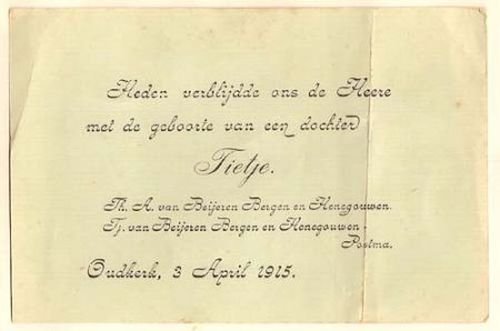 Heden verblijdde ons de Heere
met de geboorte van een dochter
Tietje.
Th. A. van Beijeren Bergen en Henegouwen.
Tj. van Beijeren Bergen en Henegouwen-
Postma.
Oudkerk, 3 April 1915.